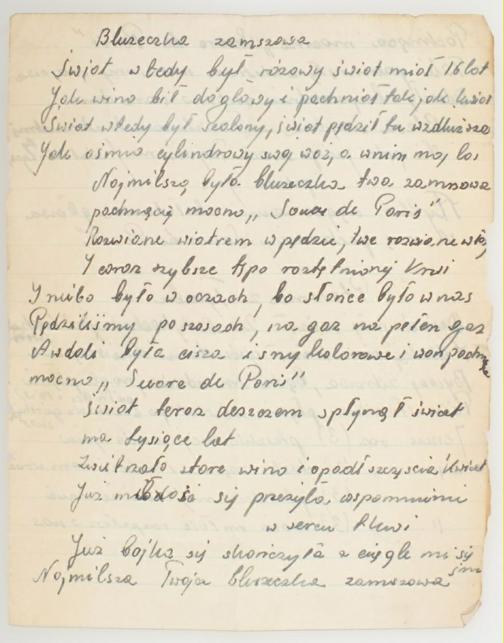 Bluzeczka zamszowa
Świat wtedy był różowy świat miał 16 lat
Jak wino bił do głowy i pachniał tak, jak kwiat
Świat wtedy był szalony, świat pędził tu wzdłuż
Jak ośmio cylindrowy swój wóz, a w nim naj los
Najmilszą była bluzeczka twa zamszowa
pachnącą mocno „ Souar de Paris"
Rozwiane wiatrem w pędzie, twe rozwiane
I coraz szybsze tępo roztętnionej krwi
I nibo było w oczach, bo słońce było w nas
Pędziliśmy po szosach, na gaz na pełen gaz
A w dali była cisza i sny kolorowe i won
mocno „ Suare de Paris"
Świat teraz deszczem spłynął świat
ma tysiące lat
Zwietrzało stare wino i opadł szczęścia kwiat
Już młodość się przeżyła wspomnieni
w sercu tkwi
Już bajka się skończyła a ciągle mi się śni
Najmilsza Twoja bluzeczka zamszowa